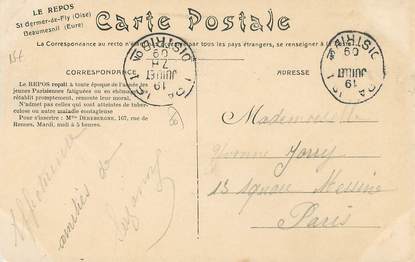 LE REPOS
St Germer-de-Fly (Oise)
Beaumesnil (Eure)
Carte Postale
La Correspondance au recto n'est pas acceptée par tous les pays étrangers, se renseigner à la
CORRESPONDANCE
ADRESSE
Le REPOS reçoit à toute époque de l'année les
jeunes Parisiennes fatiguées ou en
rétablit promptement, remonte leur moral.
N'admet pas celles qui sont atteintes de tuber-
culose ou autre maladie contagieuse
Pour s'inscrire : Mme DEHERRYPON, 167, rue de
Rennes, Mardi, midi à 5 heures.
19
JUILLET
09
19
JUILLET
09
Mademoiselle
Yvonne Jorry
13 Square Messine
Paris
amitiés de
Suzanne